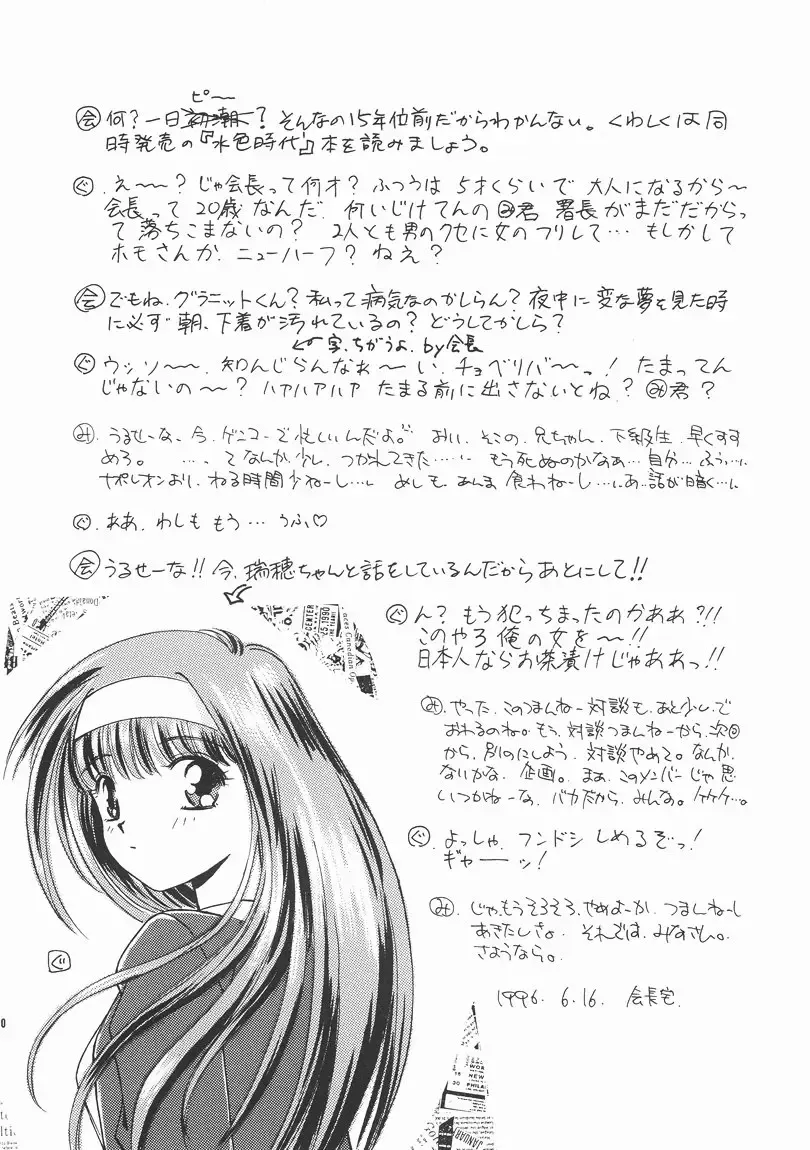 ピ〜〜
会 何？一日初潮？そんなの15年位前だからわかんない。くわしくは同
時発売の『水色時代』本を読みましょう。
ぐ. え〜〜？じゃ会長って何才？ふつうは5才くらいで大人になるから〜
会長って20歳なんだ. 何いじけてんのみ君 署長がまだだからっ
て落ちこまないの？ 2人とも男のクセに女のフリして… もしかして
ホモさんか. ニューハーフ？ねえ？
会 でもね. グラニットくん？私って病気なのかしらん？夜中に変な夢を見た時
に必ず朝、下着が汚れているの？どうしてかしら？
字. ちがうよ. by会長
ぐ ウッソ〜〜. 知んじらんなぁ〜い. チョベリバ〜っ！たまってん
じゃないの〜？ハァハァハァ たまる前に出さないとね？み君？
み. うるせーな. 今. ゲンコーで忙しいんだよ。おい. そこの. 兄ちゃん. 下級生. 早くすす
めろ。 …. てなんか. 少し. つかれてきた…… もう死ぬのかなぁ… 自分… ふぅ…
ナポレオンより. ねる時間少ねーし… めしも. あんま 食わねーし…. あ. 話が暗く…
ぐ. ああ. わしも もう… うふ♡
会 うるせーな!! 今、瑞穂ちゃんと話をしているんだからあとにして!!
ぐ ん？もう犯っちまったのかああ?!!
このやろ俺の女を〜!!
日本人ならお茶漬けじゃああっ!!
み. やった. このつまんねー対談も. あと少しで
おわるのね。もう. 対談つまんねーから. 次回
から. 別のにしよう. 対談やめて。なんか.
ないかな. 企画。まぁ. このメンバーじゃ思
いつかねーな. バカだから. みんな。ケケケ…。
ぐ. よっしゃ. フンドシ しめるぞっ！
ギャーッ！
み. じゃ. もうそろそろ. やめよーか. つまんねーし
あきたしさ。それでは. みなさん。
さようなら。
1996. 6.16. 会長宅.
ぐ
CENTER
5.1990
Canadian
WOR
NEW
PHILA
15
20
JANUARY
0